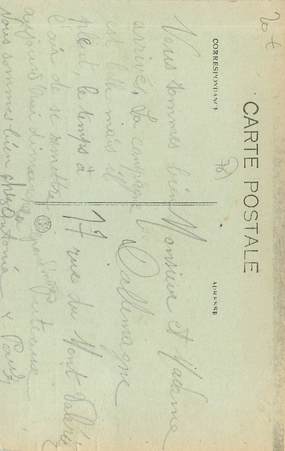 CARTE POSTALE
CORRESPONDANCE
ADRESSE
Nous sommes bien
arrivés. La campagne
est belle mais il
pleut, le temps à
l'air de se remettre
aujourd'hui dimanche
nous sommes bien chez Antonia & Paul
Monsieur et Madame
Dallemagne
17 rue du Mont Valérien
Puteaux